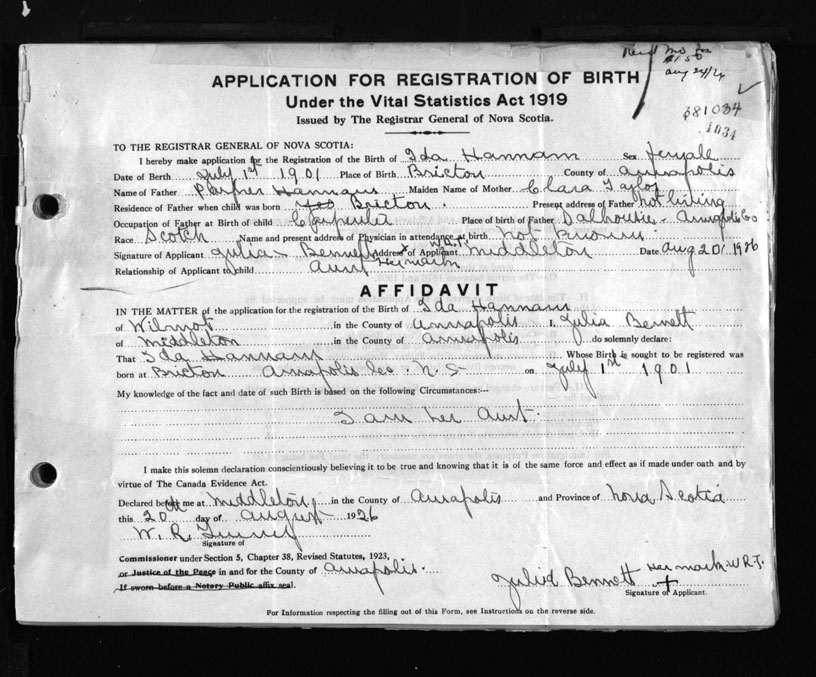 Rec'd
$1.50
Aug 24/26
APPLICATION FOR REGISTRATION OF BIRTH
Under the Vital Statistics Act 1919
681034
Issued by The Registrar General of Nova Scotia.
1034
TO THE REGISTRAR GENERAL OF NOVA SCOTIA:
I hereby make application for the Registration of the Birth of Ida Hannam Sex Female
Date of Birth July 1st 1901 Place of Birth Bricton County of Annapolis
Name of Father Hannam Maiden Name of Mother Clara Taylor
Residence of Father when child was born Bricton. Present address of Father not living
Occupation of Father at Birth of child Carpenter Place of birth of Father Dalhousie - Annapolis Co
Race Scotch Name and present address of Physician in attendance at birth. not known
Signature of Applicant Julia Bennett Address of Applicant Middleton Date Aug 20/ 1926
Relationship of Applicant to child Aunt Her mark
AFFIDAVIT
IN THE MATTER of the application for the registration of the Birth of Ida Hannam
of Wilmot in the County of Annapolis I, Julia Bennett
of Middleton in the County of Annapolis do solemnly declare:
That Ida Hannam Whose Birth is sought to be registered was
born at Bricton Annapolis Co. N.S on July 1st 1901
My knowledge of the fact and date of such Birth is based on the following Circumstances:--
I am her Aunt.
I make this solemn declaration conscientiously believing it to be true and knowing that it is of the same force and effect as if made under oath and by
virtue of The Canada Evidence Act.
Declared before me at Middleton in the County of Annapolis and Province of Nova Scotia
this 20th day of August 1926
W. R.
Signature of
Commissioner under Section 5, Chapter 38, Revised Statutes, 1923,
or Justice of the Peace in and for the County of Annapolis.
If sworn before a Notary Public affix seal.
Julia Bennett Her mark W.R.T.
+
Signature of Applicant.
For Information respecting the filling out of this Form, see Instructions on the reverse side.